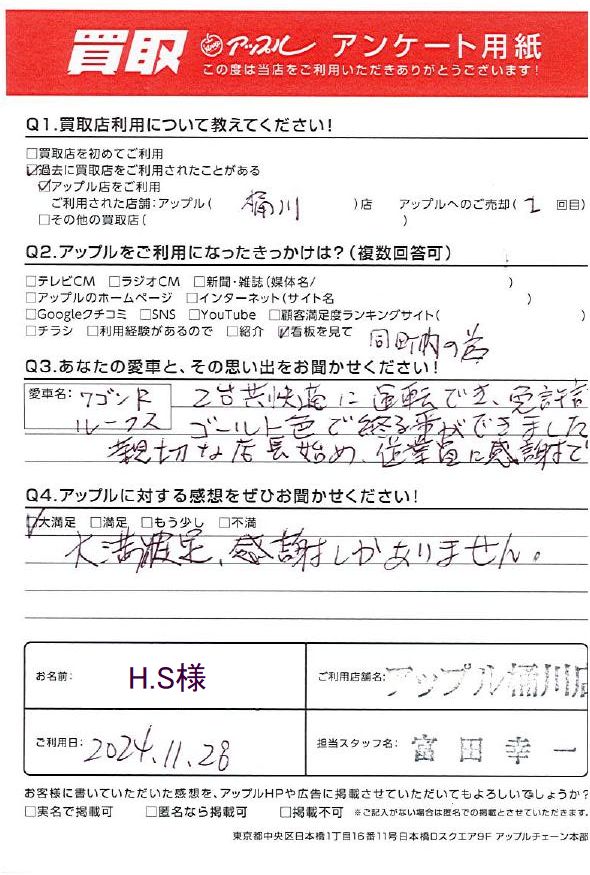 買取 アップル アンケート用紙
この度は当店をご利用いただきありがとうございます!
Q1.買取店利用について教えてください!
□買取店を初めてご利用
☑過去に買取店をご利用されたことがある
☑アップル店をご利用
ご利用された店舗:アップル( 桶川 )店 アップルへのご売却( 2 回目)
□その他の買取店( )
Q2.アップルをご利用になったきっかけは?(複数回答可)
□テレビCM □ラジオCM □新聞・雑誌(媒体名/ )
□アップルのホームページ □インターネット(サイト名 )
□Googleクチコミ □SNS □YouTube □顧客満足度ランキングサイト( )
□チラシ □利用経験があるので □紹介 ☑看板を見て 同町内の為
Q3.あなたの愛車と、その思い出をお聞かせください!
愛車名: ワゴンR 2台共快適に運転でき、免許
ルークス ゴールド色で終る事ができました
親切な店長始め、従業員に感謝で
Q4.アップルに対する感想をぜひお聞かせください!
☑大満足 □満足 □もう少し □不満
大満足、感謝しかありません。
お名前: H.S様 ご利用店舗名: アップル桶川店
ご利用日: 2024.11.28 担当スタッフ名: 富田幸一
お客様に書いていただいた感想を、アップルHPや広告に掲載させていただいてもよろしいでしょうか?
□実名で掲載可 □匿名なら掲載可 □掲載不可 ※ご記入がない場合は匿名での掲載とさせていただきます。
東京都中央区日本橋1丁目16番11号日本橋Dスクエア9F アップルチェーン本部